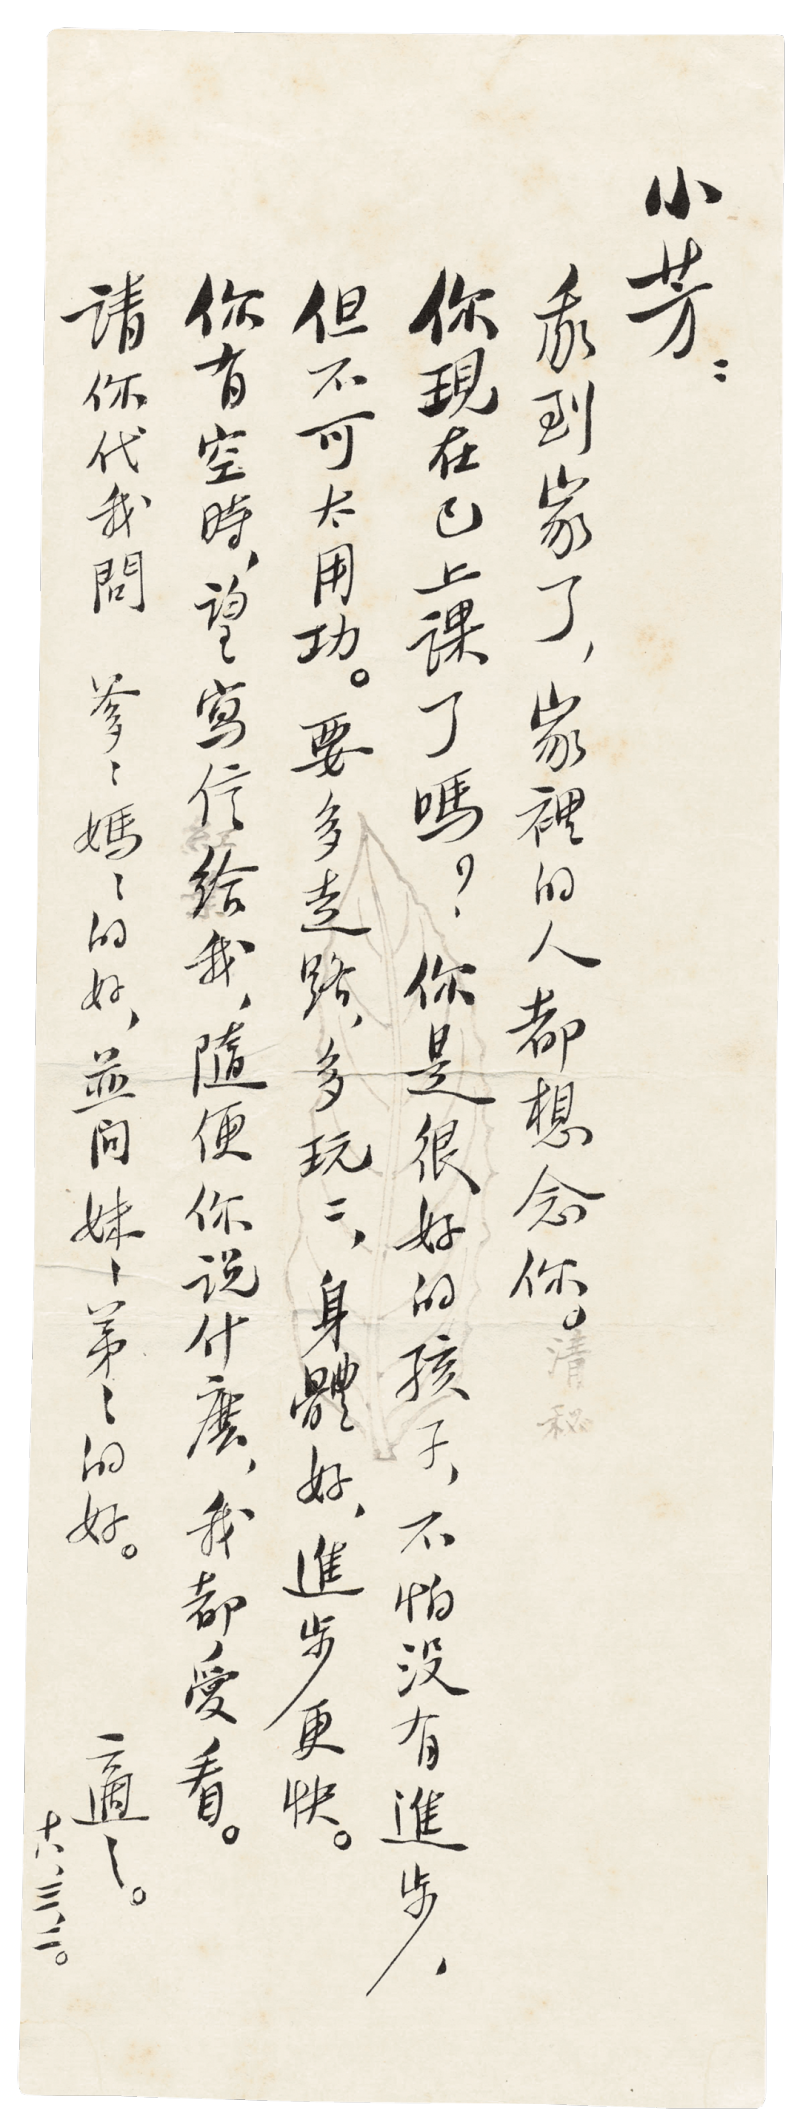 小芳：
我到家了，家裡的人都想念你。
你現在已上課了嗎？你是很好的孩子，不怕没有進步，
但不可太用功。要多走路，多玩二，身體好，進步更快。
你有空時，望寫信給我，隨便你説什麽，我都愛看。
請你代我問 爹〻媽〻的好，並问妹〻弟〻的好。
適〻。
十八、三、二。
清秘